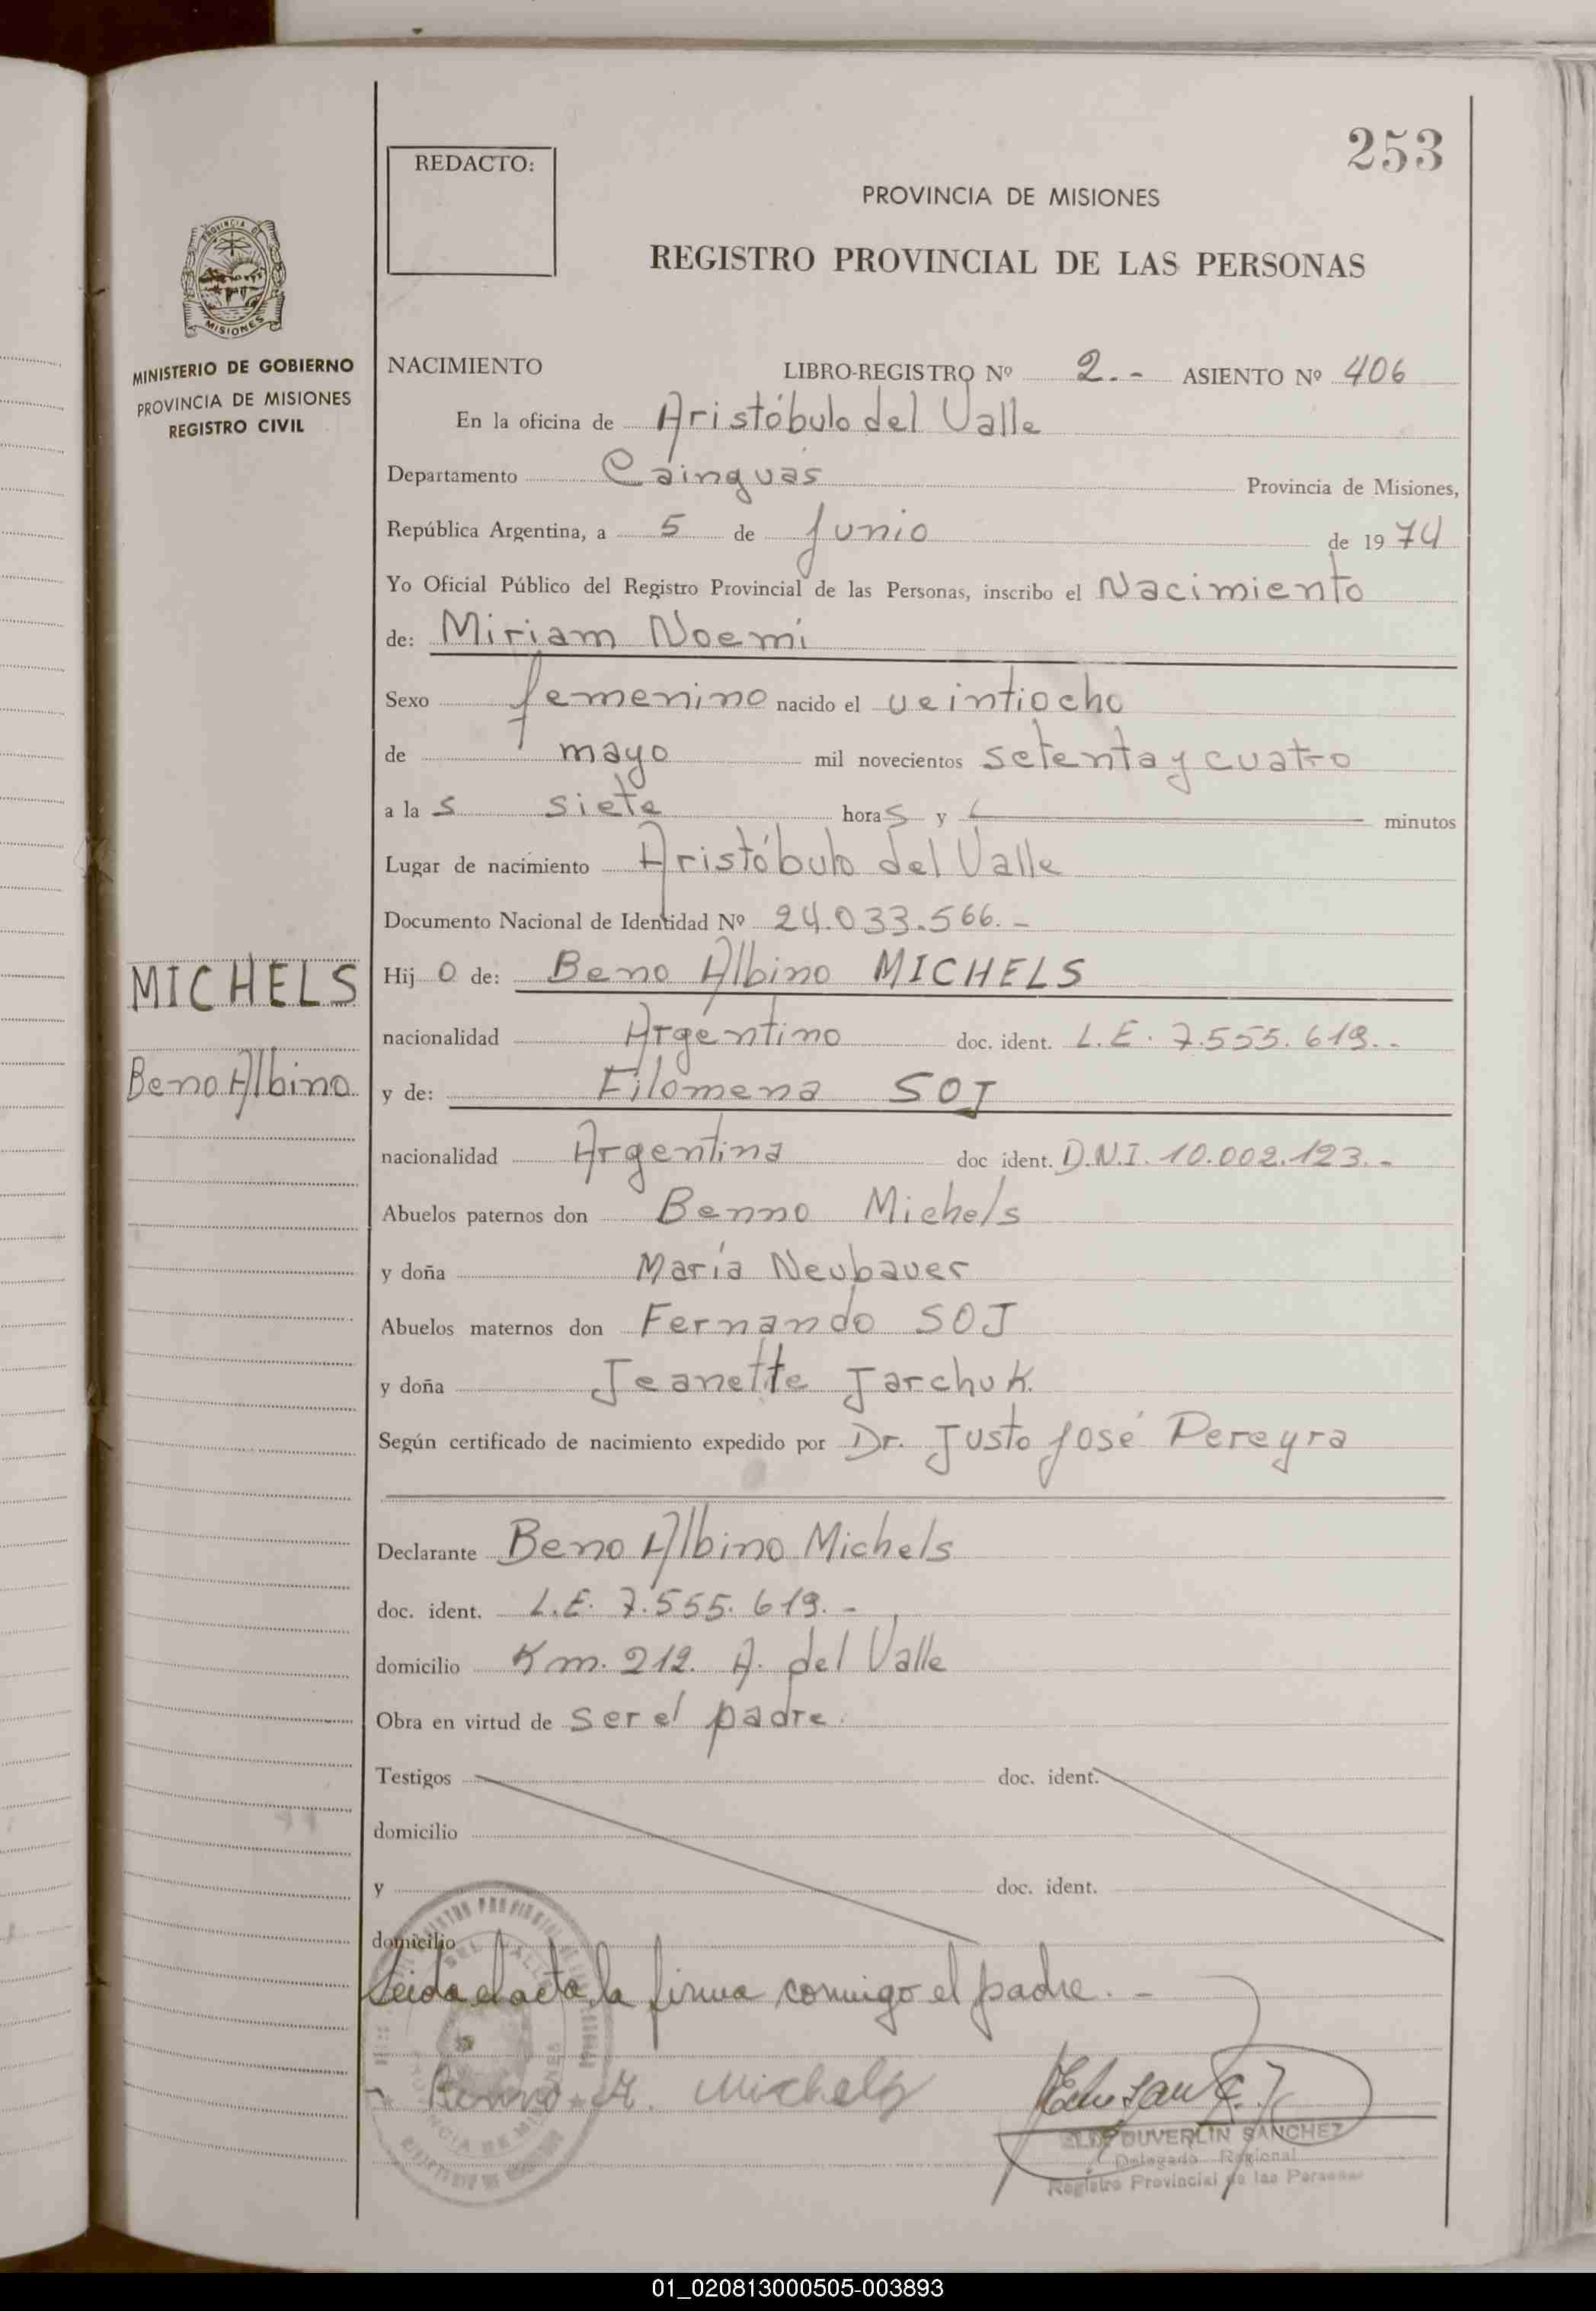 253
REDACTO:
PROVINCIA DE MISIONES
REGISTRO PROVINCIAL DE LAS PERSONAS
PROVINCIA DE
MISIONES
MINISTERIO DE GOBIERNO
PROVINCIA DE MISIONES
REGISTRO CIVIL
NACIMIENTO LIBRO-REGISTRO Nº 2.- ASIENTO Nº 406
En la oficina de Aristóbulo del Valle
Departamento Cainguás Provincia de Misiones,
República Argentina, a 5 de Junio de 1974
Yo Oficial Público del Registro Provincial de las Personas, inscribo el Nacimiento
de: Miriam Noemí
Sexo femenino nacido el veintiocho
de mayo mil novecientos setenta y cuatro
a las siete horas y minutos
Lugar de nacimiento Aristóbulo del Valle
Documento Nacional de Identidad Nº 24.033.566.-
MICHELS
Beno Albino
Hijo de: Beno Albino MICHELS
nacionalidad Argentino doc. ident. L.E. 7.555.619.-
y de: Filomena SOJ
nacionalidad Argentina doc ident. D.N.I. 10.002.123.-
Abuelos paternos don Benno Michels
y doña María Neubauer
Abuelos maternos don Fernando SOJ
y doña Jeanette Jarchuk.
Según certificado de nacimiento expedido por Dr. Justo José Pereyra
Declarante Beno Albino Michels
doc. ident. L.E. 7.555.619.-
domicilio Km. 212. A. del Valle
Obra en virtud de ser el padre.
Testigos doc. ident.
domicilio
y doc. ident.
domicilio
Leida el acta, la firma conmigo el padre.-
Benno A. Michels
DUVERLIN SANCHEZ
Delegado Regional
Registro Provincial de las Personas
01_020813000505-003893